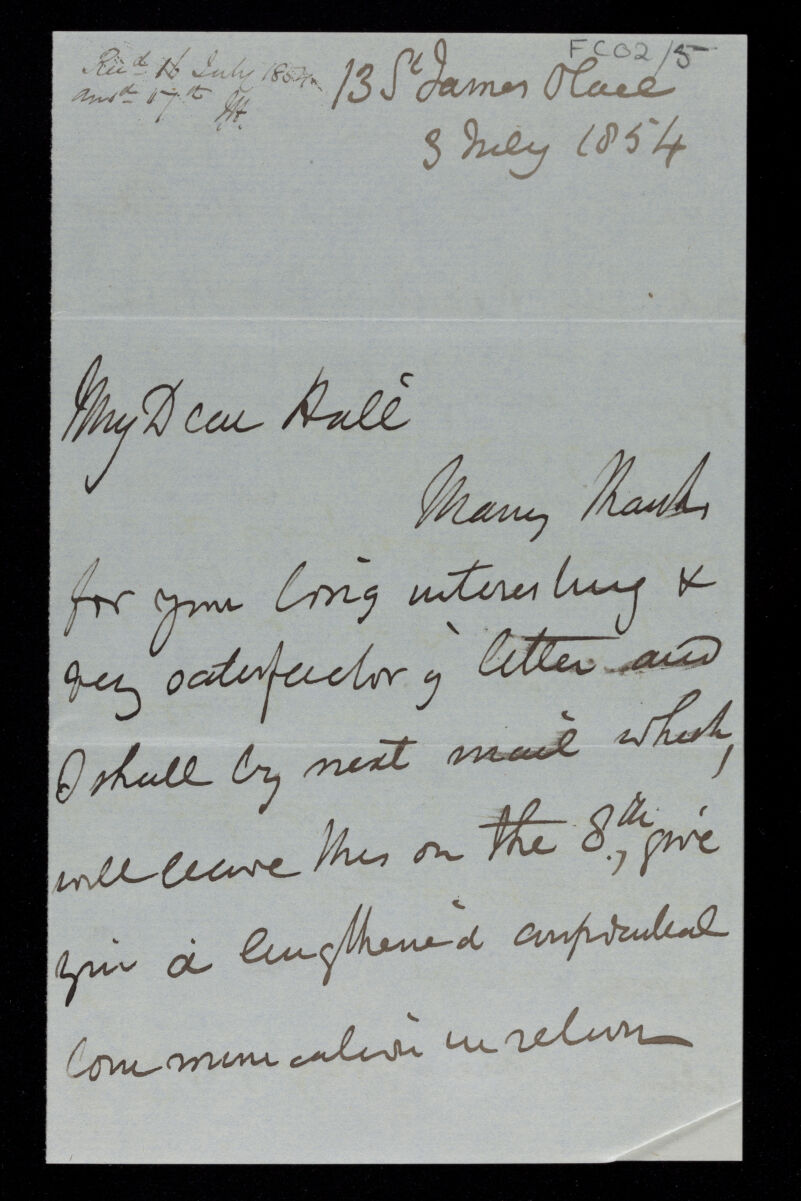 FC02/5
Recd 16 July 1854
ansd 17th JH.
13 St James Place
3 July 1854
My Dear Hall
Many thanks
for your long interesting &
very satisfactory letter and
I shall by next mail which,
will leave this on the 8th, give
you a lengthened confidential
communication in return